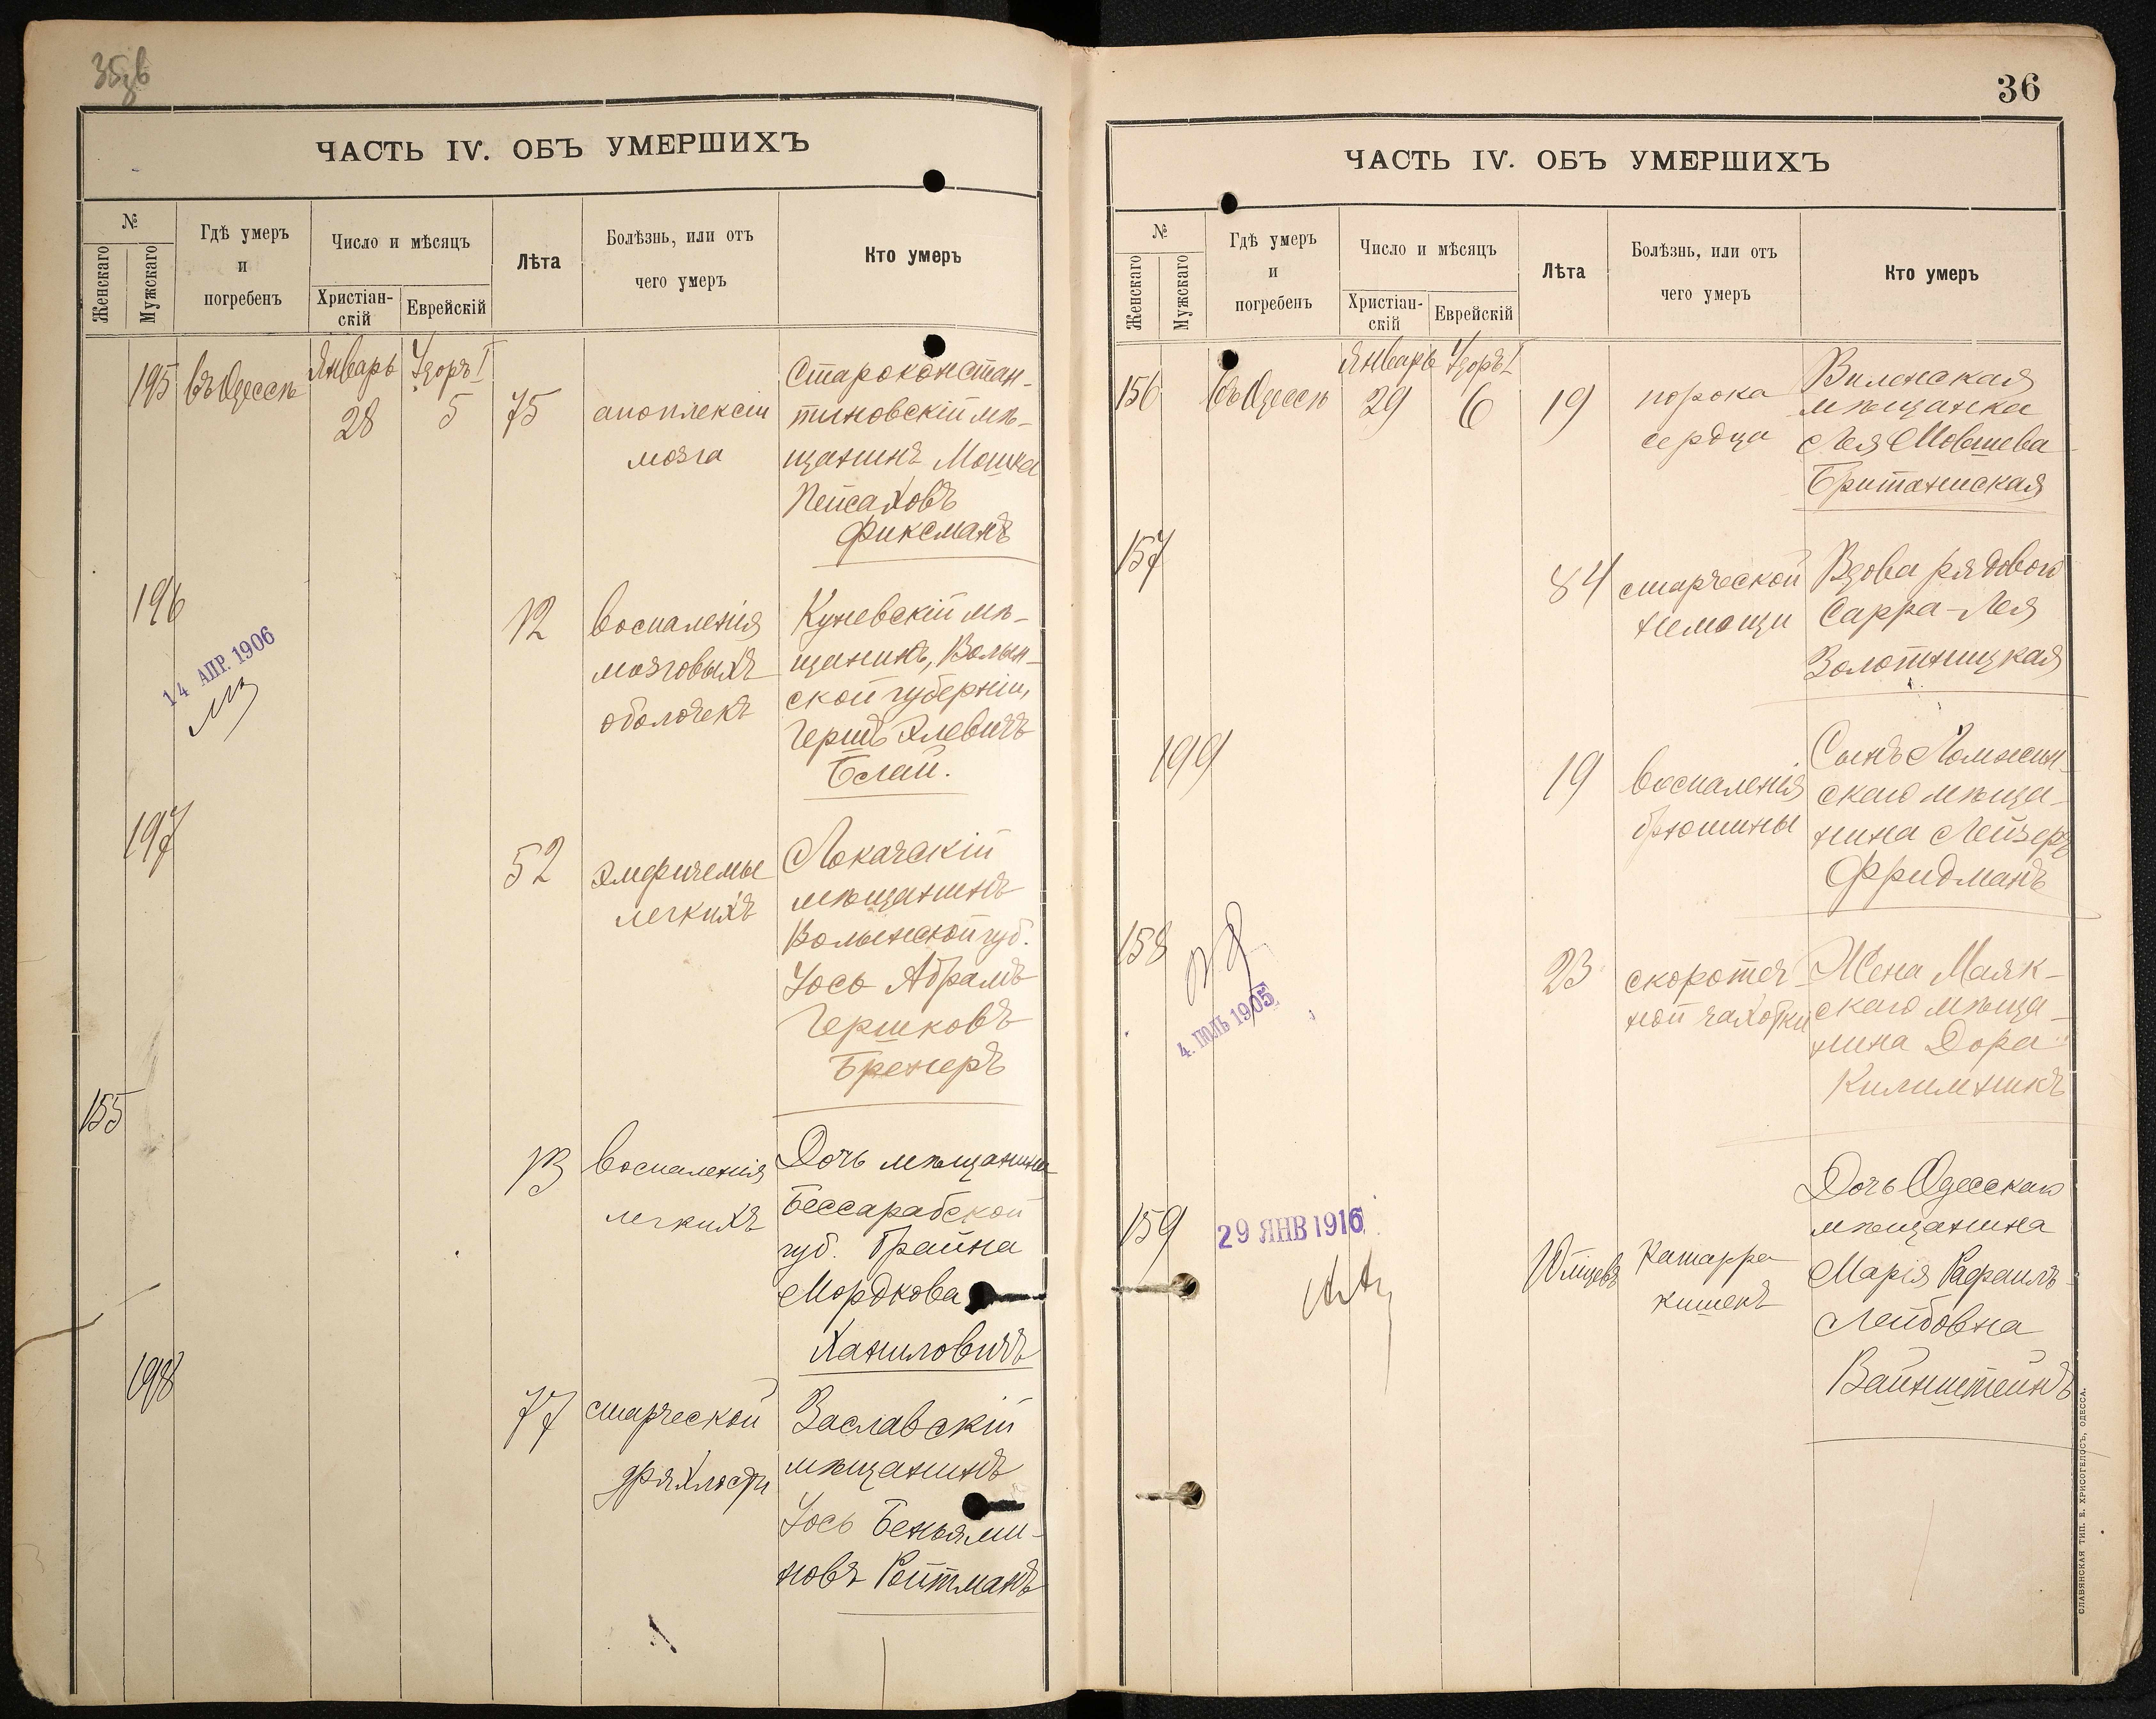 ЧАСТЬ IV. ОБЪ УМЕРШИХЪ
№
Женскаго
Мужскаго
Гдѣ умеръ
и
погребенъ
Число и мѣсяцъ
Христіан-
скій
Еврейскій
Лѣта
Болѣзнь, или отъ
чего умеръ
Кто умеръ
195
въ Одессѣ
Январь
28
Удоръ I
5
75
апоплексіи
мозга
Староконстан-
тиновскій мѣ-
щанинъ Мошка
Пейсаховъ
Фиксманъ
196
14 АПР. 1906
12
воспаленія
мозговыхъ
оболочекъ
Куневскій мѣ-
щанинъ, Волын-
ской губерніи,
Гершъ Элевичъ
Бслай.
197
52
эмфиземы
легкихъ
Локачскій
мѣщанинъ
Волынской губ.
Іось Абрамъ
Гершковъ
Бренеръ
155
13
воспаленія
легкихъ
Дочь мѣщанина
Бессарабской
губ. Брайна
Мордкова
Ханиловичъ
198
77
старческой
дряхлости
Заславскій
мѣщанинъ
Іось Беньями-
новъ Ройтманъ
36
ЧАСТЬ IV. ОБЪ УМЕРШИХЪ
№
Женскаго
Мужскаго
Гдѣ умеръ
и
погребенъ
Число и мѣсяцъ
Христіан-
скій
Еврейскій
Лѣта
Болѣзнь, или отъ
чего умеръ
Кто умеръ
156
въ Одессѣ
Январь
29
Удоръ I
6
19
порока
сердца
Виленская
мѣщанка
Лея Мовшева
Британиская
157
84
старческой
немощи
Вдова рядового
Сарра-Лея
Золотницкая
199
19
воспаленія
брюшины
Сынъ Ломжин-
скаго мѣща-
нина Лейзеръ
Фридманъ
158
4. ІЮЛЬ 1905
23
скоротеч-
ной чахотки
Жена Маяк-
скаго мѣща-
нина Дора
Килимникъ
159
29 ЯНВ 1916
10 мѣсяцевъ
Катарра
кишекъ
Дочь Одесскаго
мѣщанина
Марія Рафаилъ-
Лейбовна
Вайнштейнъ
СЛАВЯНСКАЯ ТИП. Е. ХРИСОГЕЛОСЪ, ОДЕССА.